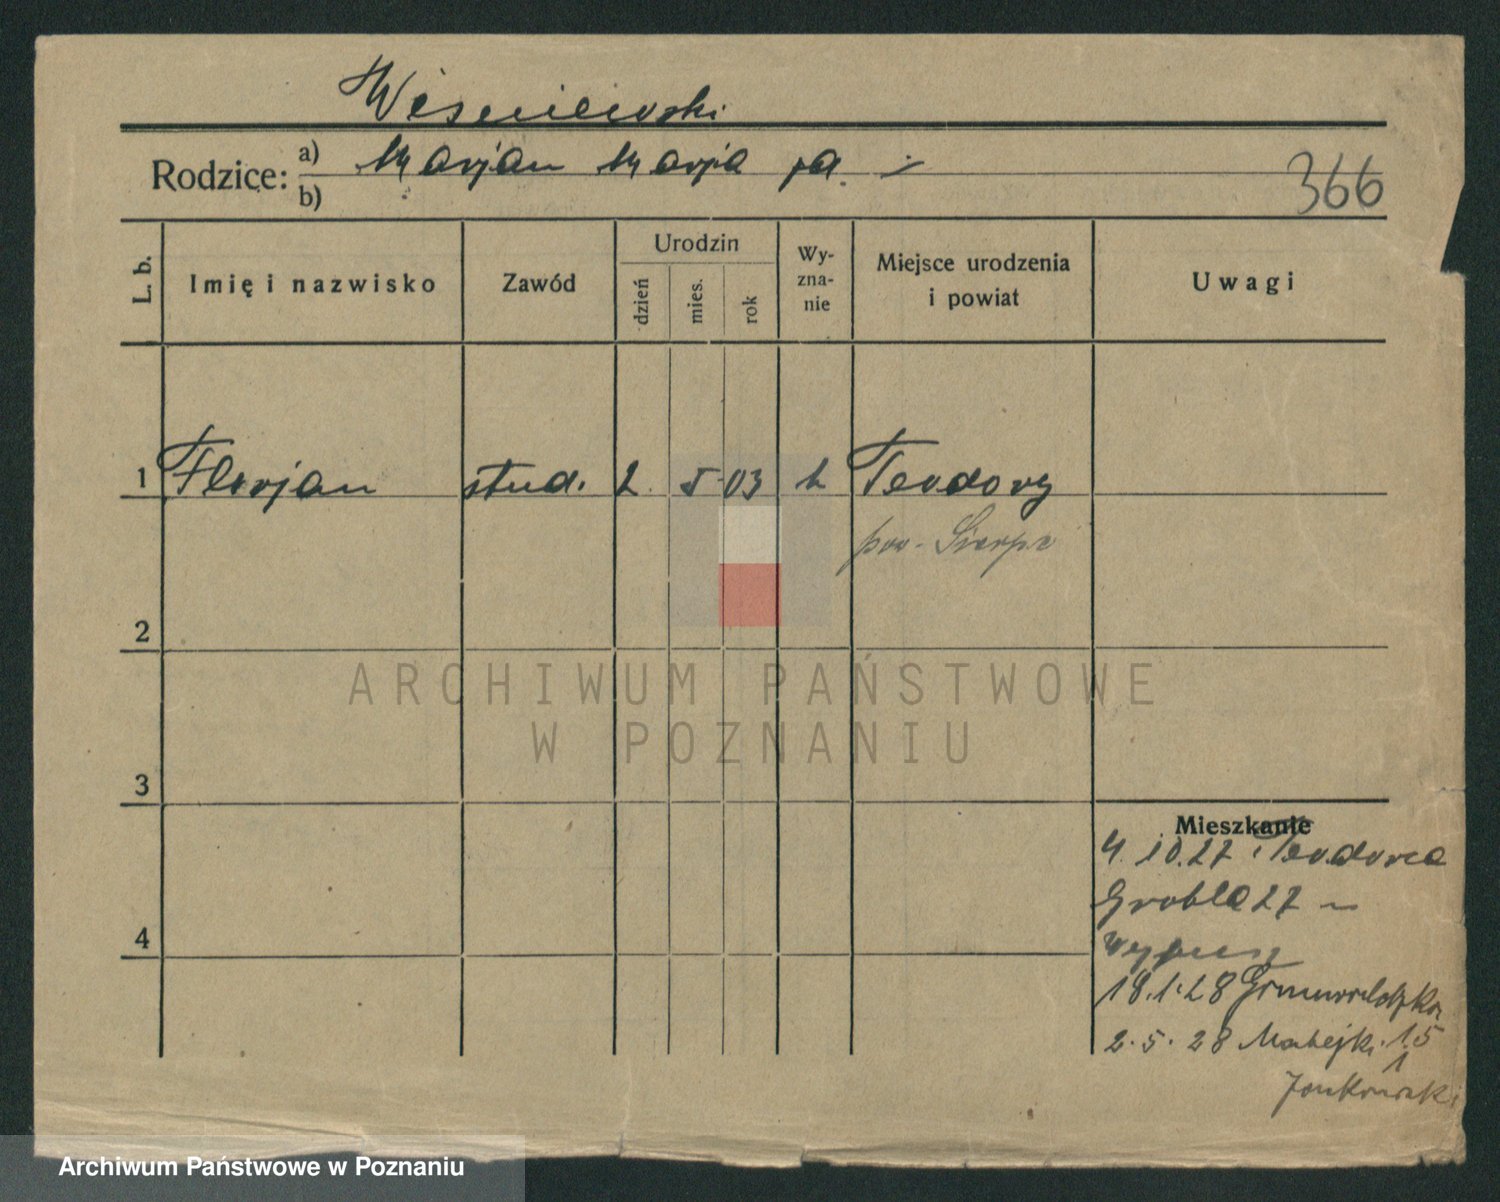 Wiśniewski
Rodzice: a) Marjan Marja
b)
366
L. b.
Imię i nazwisko
Zawód
Urodzin
dzień
mies.
rok
Wy-
zna-
nie
Miejsce urodzenia
i powiat
Uwagi
1 Florjan stud. 2. 5. 03 k Teodory
pow. Sierpc
2
ARCHIWUM PAŃSTWOWE
W POZNANIU
3
Mieszkanie
4. 10. 27 Teodorca
Grobla 27
4
18. 1. 28 Grunwaldzka
2. 5. 28 Matejki 15
1
Jankowski
Archiwum Państwowe w Poznaniu